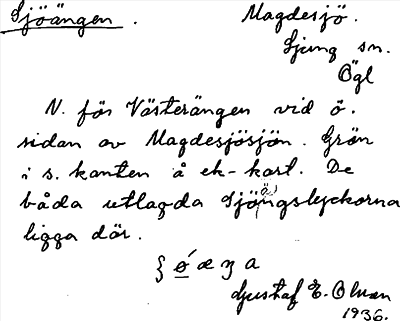 Sjöängen.
Magdesjö.
Ljung sn.
Ögl
N. för Västerängen vid ö.
sidan av Magdesjösjön. Grön
i s. kanten å ek-kart. De
båda utlagda Sjöängslyckorna
ligga där.
Gustaf E. Olman
1936.